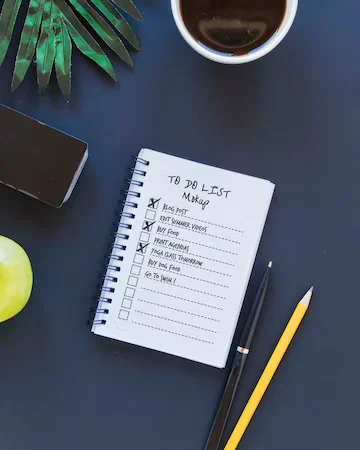 TO DO LIST
Mokup
BLOG POST
EDIT SUMMER VIDEOS
BUY FOOD
PRINT AGENDAS
YOGA CLASS TOMORROW
BUY DOG FOOD
GO TO SWIM !